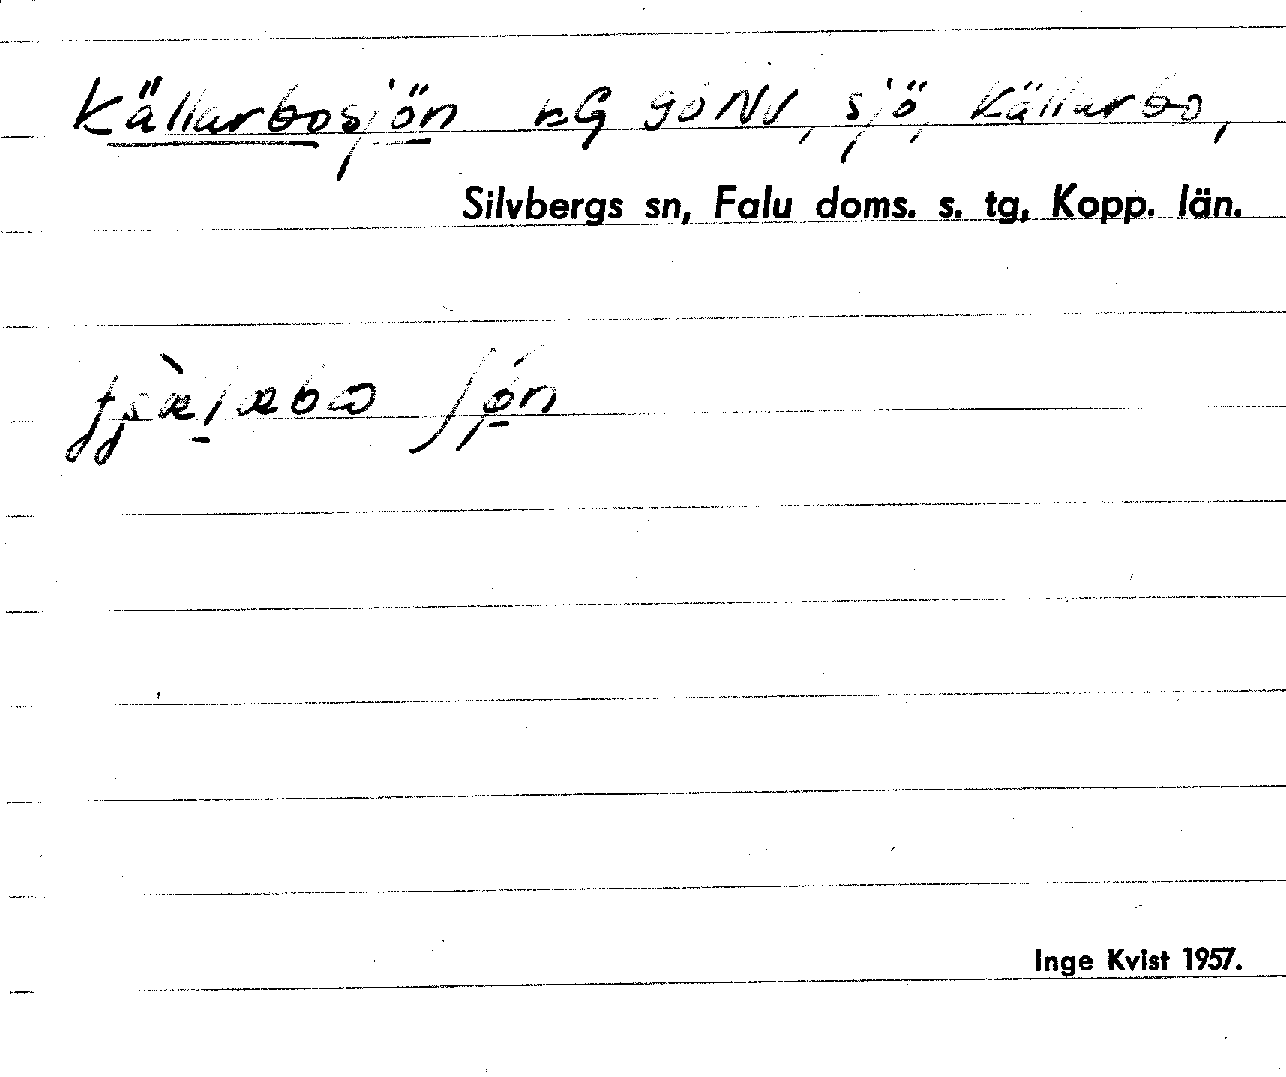 Källarbosjön EG 90NV, sjö, Källarbo,
Silvbergs sn, Falu doms. s. tg, Kopp. län.
Inge Kvist 1957.